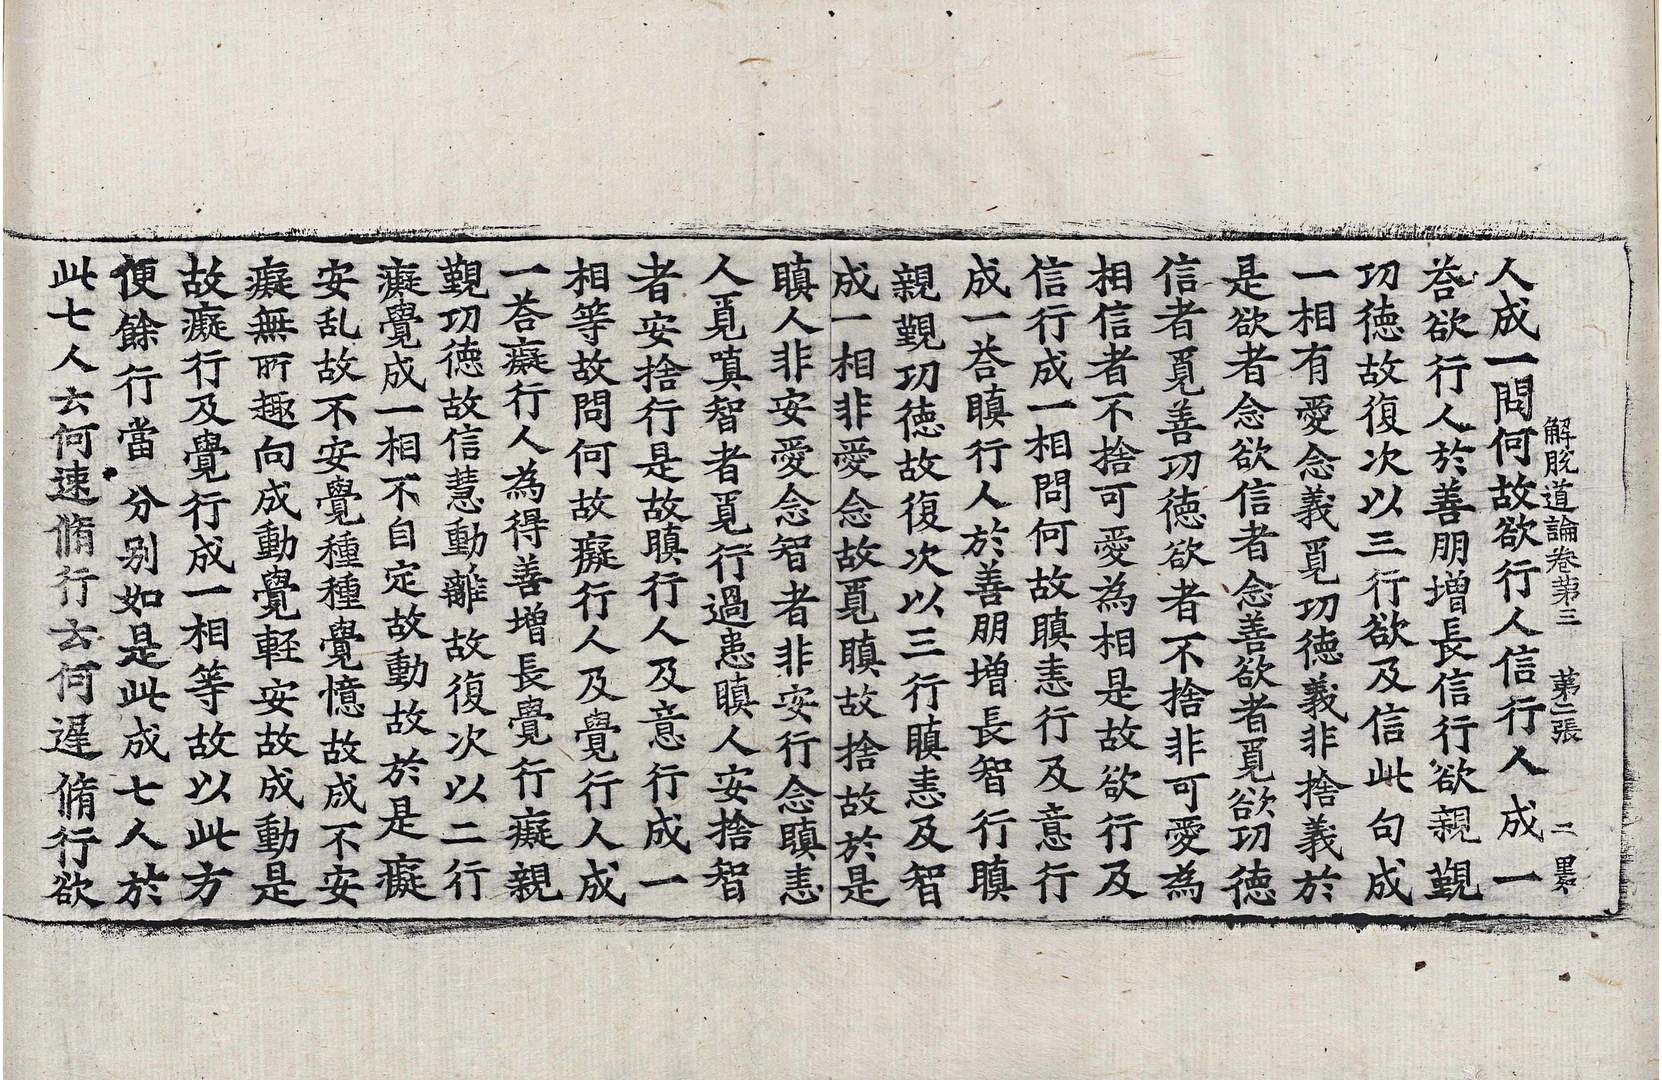 解脫道論卷第三　第二張　二　墨
人成一問何故欲行人信行人成一
荅欲行人於善朋增長信行欲親覲
功徳故復次以三行欲及信此句成
一相有愛念義覓功徳義非捨義於
是欲者念欲信者念善欲者覓欲功徳
信者覓善功徳欲者不捨非可愛為
相信者不捨可愛為相是故欲行及
信行成一相問何故瞋恚行及意行
成一荅瞋行人於善朋增長智行瞋
親覲功徳故復次以三行瞋恚及智
成一相非愛念故覓瞋故捨故於是
瞋人非安愛念智者非安行念瞋恚
人覓嗔智者覓行過患瞋人安捨智
者安捨行是故瞋行人及意行成一
相等故問何故癡行人及覺行人成
一荅癡行人為得善增長覺行癡親
覲功徳故信慧動離故復次以二行
癡覺成一相不自定故動故於是癡
安乱故不安覺種種覺憶故成不安
癡無所趣向成動覺輕安故成動是
故癡行及覺行成一相等故以此方
便餘行當分别如是此成七人於
此七人云何速脩行云何遲脩行欲